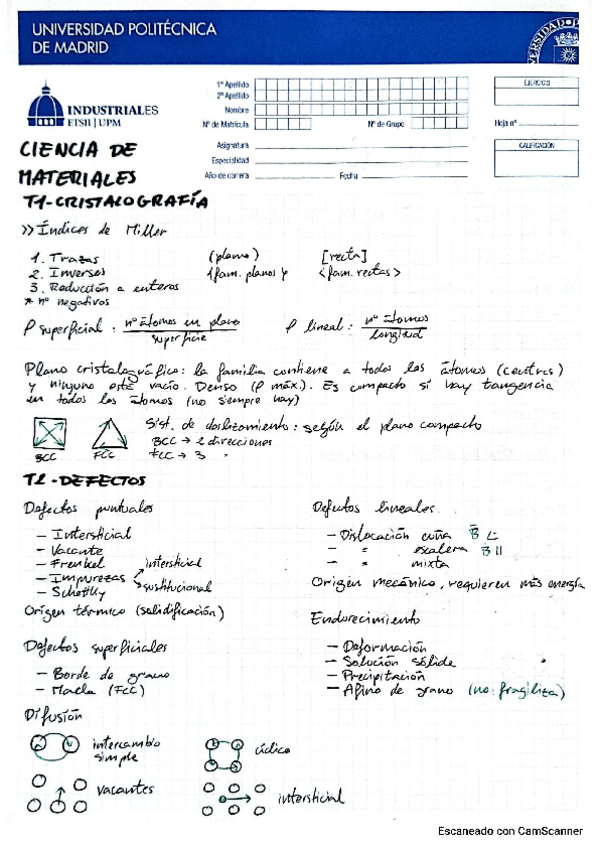 UNIVERSIDAD POLITÉCNICA
DE MADRID
INDUSTRIALES
ETSII | UPM
1º Apellido
2º Apellido
Nombre
Nº de Matrícula
Nº de Grupo
Asignatura
Especialidad
Año de carrera
Fecha
EJERCICIO
Hoja nº
CALIFICACIÓN
CIENCIA DE
MATERIALES
T1-CRISTALOGRAFÍA
>> Índices de Miller
1. Trazas (plano) [recta]
2. Inversos {fam. planos} <fam. rectas>
3. Reducción a enteros
* nº negativos
ρ superficial : nº átomos en plano / superficie
ρ lineal : nº átomos / longitud
Plano cristalográfico: la familia contiene a todos los átomos (centros)
y ninguno está vacío. Denso (ρ máx.). Es compacto si hay tangencia
en todos los átomos (no siempre hay)
BCC FCC
Sist. de deslizamiento: según el plano compacto
BCC → 2 direcciones
FCC → 3 "
T2-DEFECTOS
Defectos puntuales
- Intersticial
- Vacante
- Frenkel
- Impurezas intersticial
sustitucional
- Schottky
Origen térmico (solidificación)
Defectos lineales.
- Dislocación cuña B ⊥
- " escalera B ||
- " mixta
Origen mecánico, requieren más energía
Defectos superficiales
- Borde de grano
- Macla (FCC)
Endurecimiento
- Deformación
- Solución sólida
- Precipitación
- Afino de grano (no fragiliza)
Difusión
intercambio
simple
cíclico
vacantes
intersticial
Escaneado con CamScanner